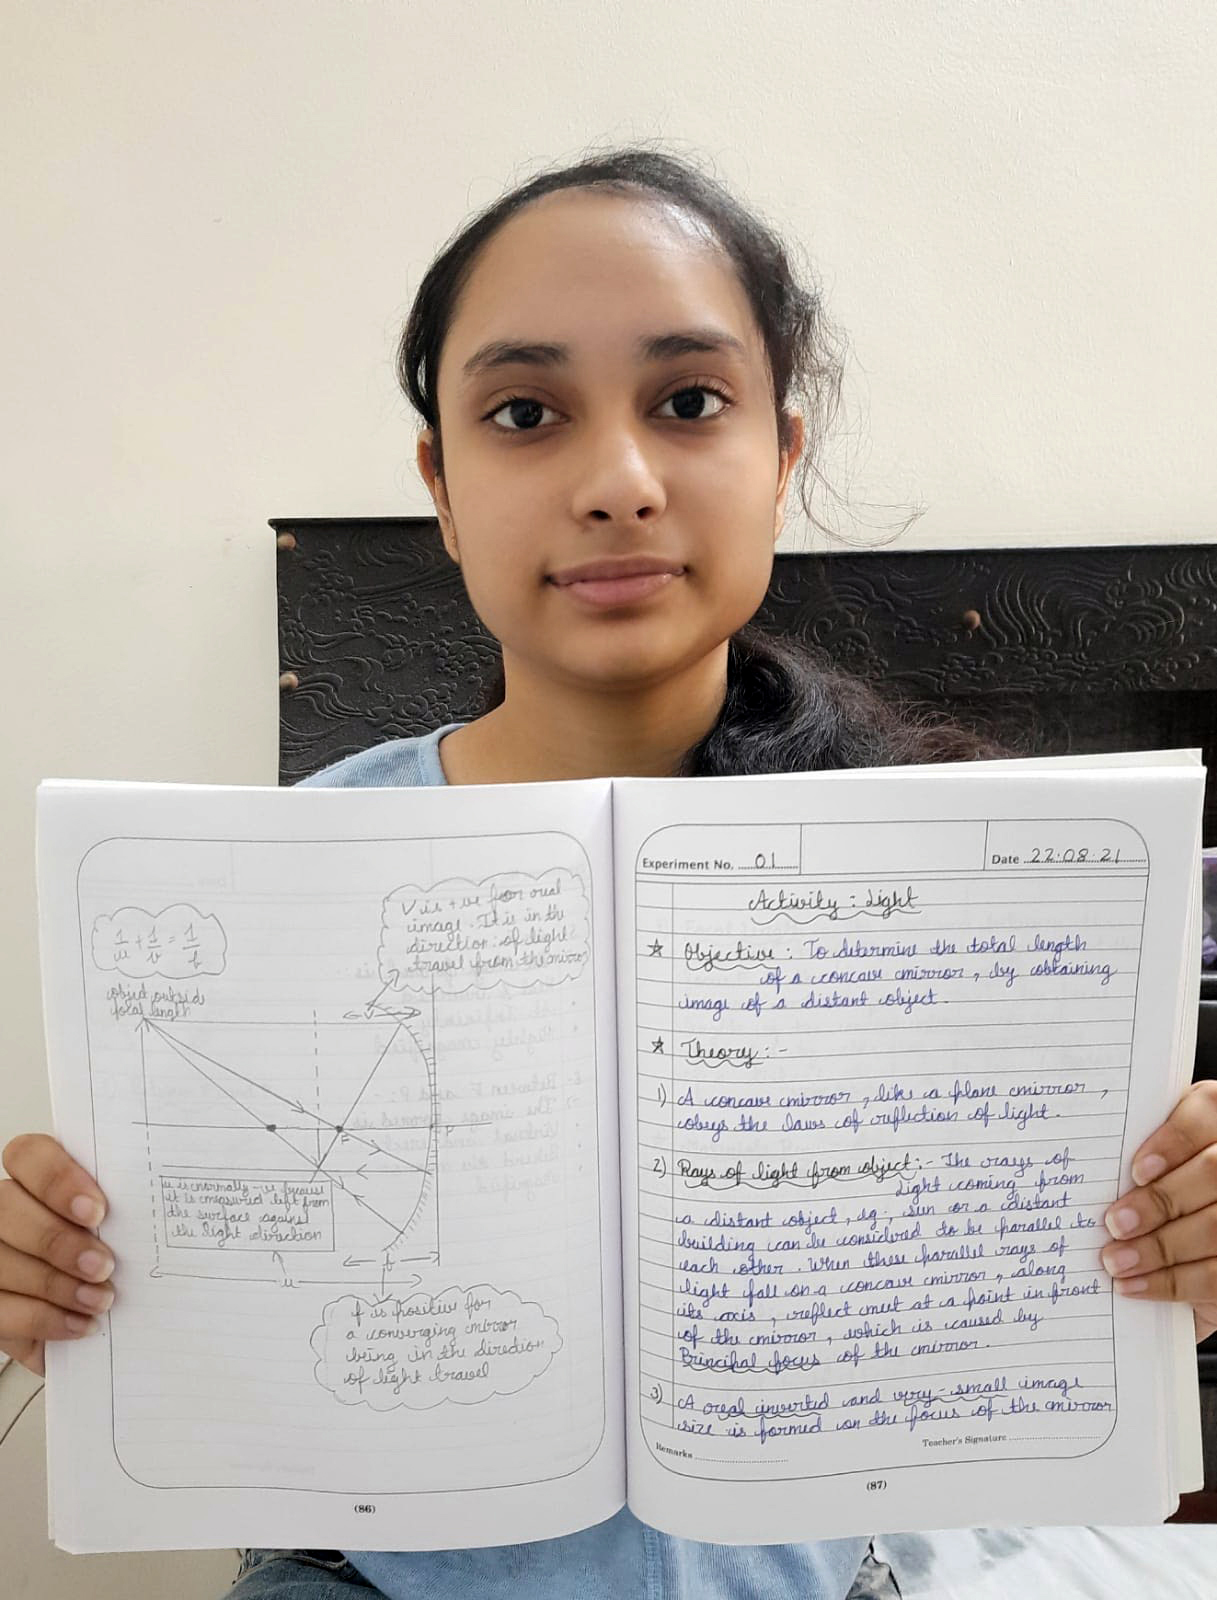 1/u + 1/v = 1/f
object outside
focal length
V is +ve for real
image. It is in the
direction of light
travel from the mirror
v
F
P
u is normally -ve because
it is measured left from
the surface against
the light direction
f
u
f is positive for
a converging mirror
being in the direction
of light travel
(86)
Experiment No. 01
Date 22.08.21
Activity : Light
☆ Objective : To determine the total length
of a concave mirror, by obtaining
image of a distant object.
☆ Theory :-
1) A concave mirror, like a plane mirror,
obeys the laws of reflection of light.
2) Rays of light from object :- The rays of
light coming from
a distant object, eg., sun or a distant
building can be considered to be parallel to
each other. When these parallel rays of
light fall on a concave mirror, along
its axis, reflect meet at a point in front
of the mirror, which is caused by
Principal focus of the mirror.
3) A real inverted and very-small image
size is formed on the focus of the mirror
Remarks
Teacher's Signature
(87)